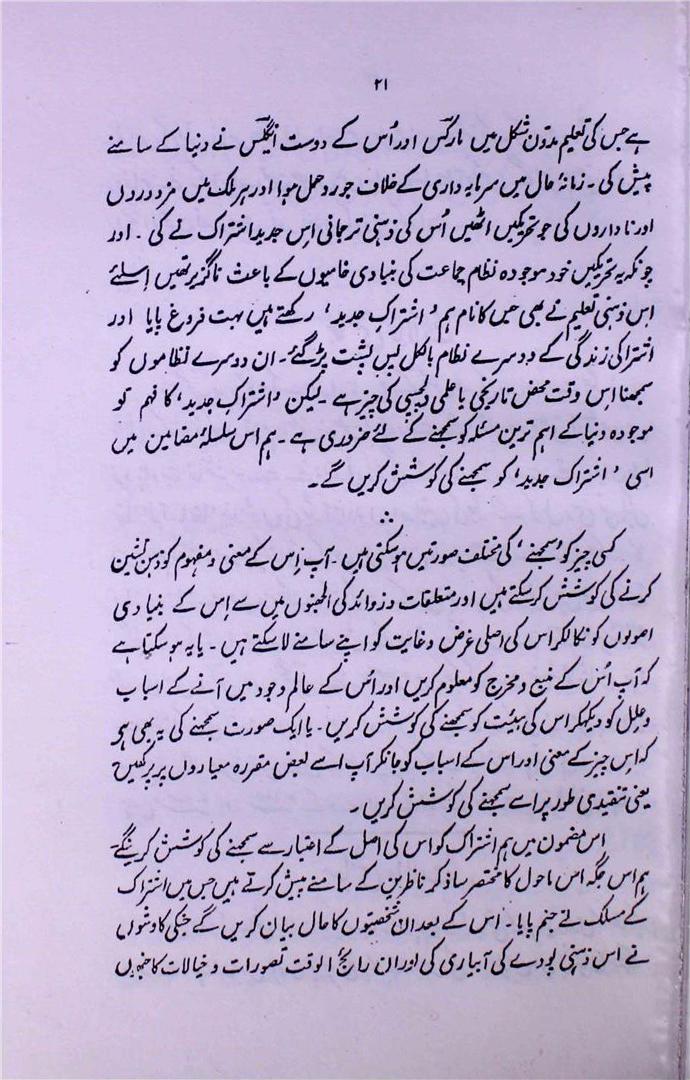 ۲۱
ہے جس کی تعلیم مدوّن شکل میں مارکس اور اُس کے دوست انگلیس نے دنیا کے سامنے
پیش کی ۔ زمانۂ حال میں سرمایہ داری کے خلاف جو ردِ عمل ہوا اور ہر ملک میں مزدوروں
اور ناداروں کی جو تحریکیں اٹھیں اُس کی ذہنی ترجمانی اِس جدید اشتراک نے کی ۔ اور
چونکہ یہ تحریکیں خود موجودہ نظام جماعت کی بنیادی خامیوں کے باعث ناگزیر تھیں اِسلئے
اِس ذہنی تعلیم نے بھی جس کا نام ہم ’اشتراک جدید‘ رکھتے ہیں بہت فروغ پایا اور
اشتراکی زندگی کے دوسرے نظام بالکل پس پشت پڑ گئے ۔ ان دوسرے نظاموں کو
سمجھنا اِس وقت محض تاریخی یا علمی دلچسپی کی چیز ہے ۔ لیکن ’اشتراک جدید‘ کا فہم تو
موجودہ دنیا کے اہم ترین مسئلہ کو سمجھنے کے لئے ضروری ہے ۔ ہم اس سلسلۂ مضامین میں
اسی ’اشتراک جدید‘ کو سمجھنے کی کوشش کریں گے ۔
کسی چیز کو ’سمجھنے‘ کی مختلف صورتیں ہو سکتی ہیں ۔ آپ اِس کے معنی و مفہوم کو ذہن نشین
کرنے کی کوشش کر سکتے ہیں اور متعلقات و زوائد کی الجھنوں میں سے اِس کے بنیادی
اصولوں کو نکالکر اس کی اصلی غرض و غایت کو اپنے سامنے لا سکتے ہیں ۔ یا یہ ہو سکتا ہے
کہ آپ اُس کے منبع و مخرج کو معلوم کریں اور اُس کے عالم وجود میں آنے کے اسباب
و علل کو دیکھکر اس کی ہیئت کو سمجھنے کی کوشش کریں ۔ یا ایک صورت سمجھنے کی یہ بھی ہو
کہ اِس چیز کے معنی اور اس کے اسباب کو جانکر آپ اسے بعض مقررہ معیاروں پر پرکھیں
یعنی تنقیدی طور پر اسے سمجھنے کی کوشش کریں ۔
اس مضمون میں ہم اشتراک کو اس کی اصل کے اعتبار سے سمجھنے کی کوشش کرینگے۔
ہم اس جگہ اس ماحول کا مختصر سا ذکر ناظرین کے سامنے پیش کرتے ہیں جس میں اشتراک
کے مسلک نے جنم پایا ۔ اس کے بعد ان شخصیتوں کا حال بیان کریں گے جنکی کاوشوں
نے اس ذہنی پودے کی آبیاری کی اور ان رائج الوقت تصورات و خیالات کا جنہوں